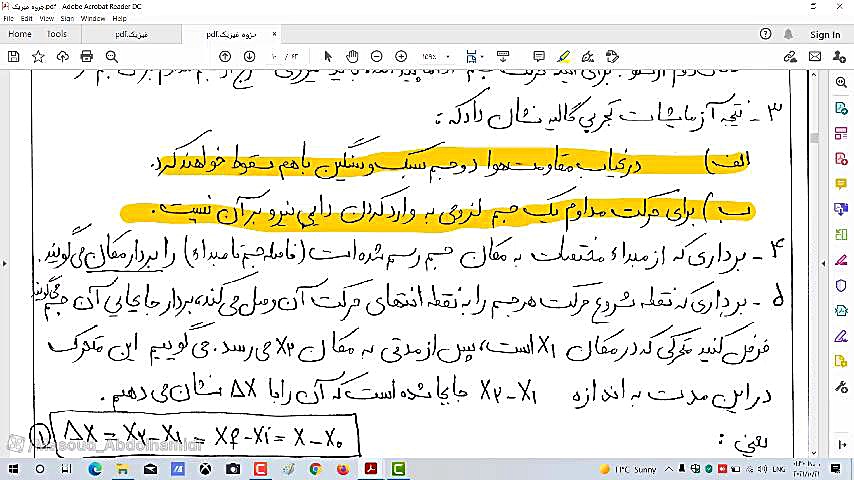 جزوه فیزیک.pdf - Adobe Acrobat Reader DC
File Edit View Sign Window Help
Home Tools فیزیک.pdf جزوه فیزیک.pdf × Sign In
۳ - نتیجه آزمایشات تجربی گالیله نشان داد که :
الف) در غیاب مقاومت هوا دو جسم سبک و سنگین با هم سقوط خواهند کرد.
ب) برای حرکت مداوم یک جسم لزومی به وارد کردن دایمی نیرو بر آن نیست.
۴ - برداری که از مبداء مختصات به مکان جسم رسم شده است (فاصله جسم تا مبداء) را بردار مکان می‌گویند.
۵ - برداری که نقطه شروع حرکت هر جسم را به نقطه انتهای حرکت آن وصل می‌کند، بردار جابجایی آن جسم می‌گویند
فرض کنید متحرکی که در مکان X₁ است، پس از مدتی به مکان X₂ می‌رسد. می‌گوییم این متحرک
در این مدت به اندازه X₂-X₁ جابجا شده است که آن را با ΔX نشان می‌دهیم.
یعنی : ΔX = X₂-X₁ = Xf-Xi = X-X₀ (۱)
11°C Sunny ENG